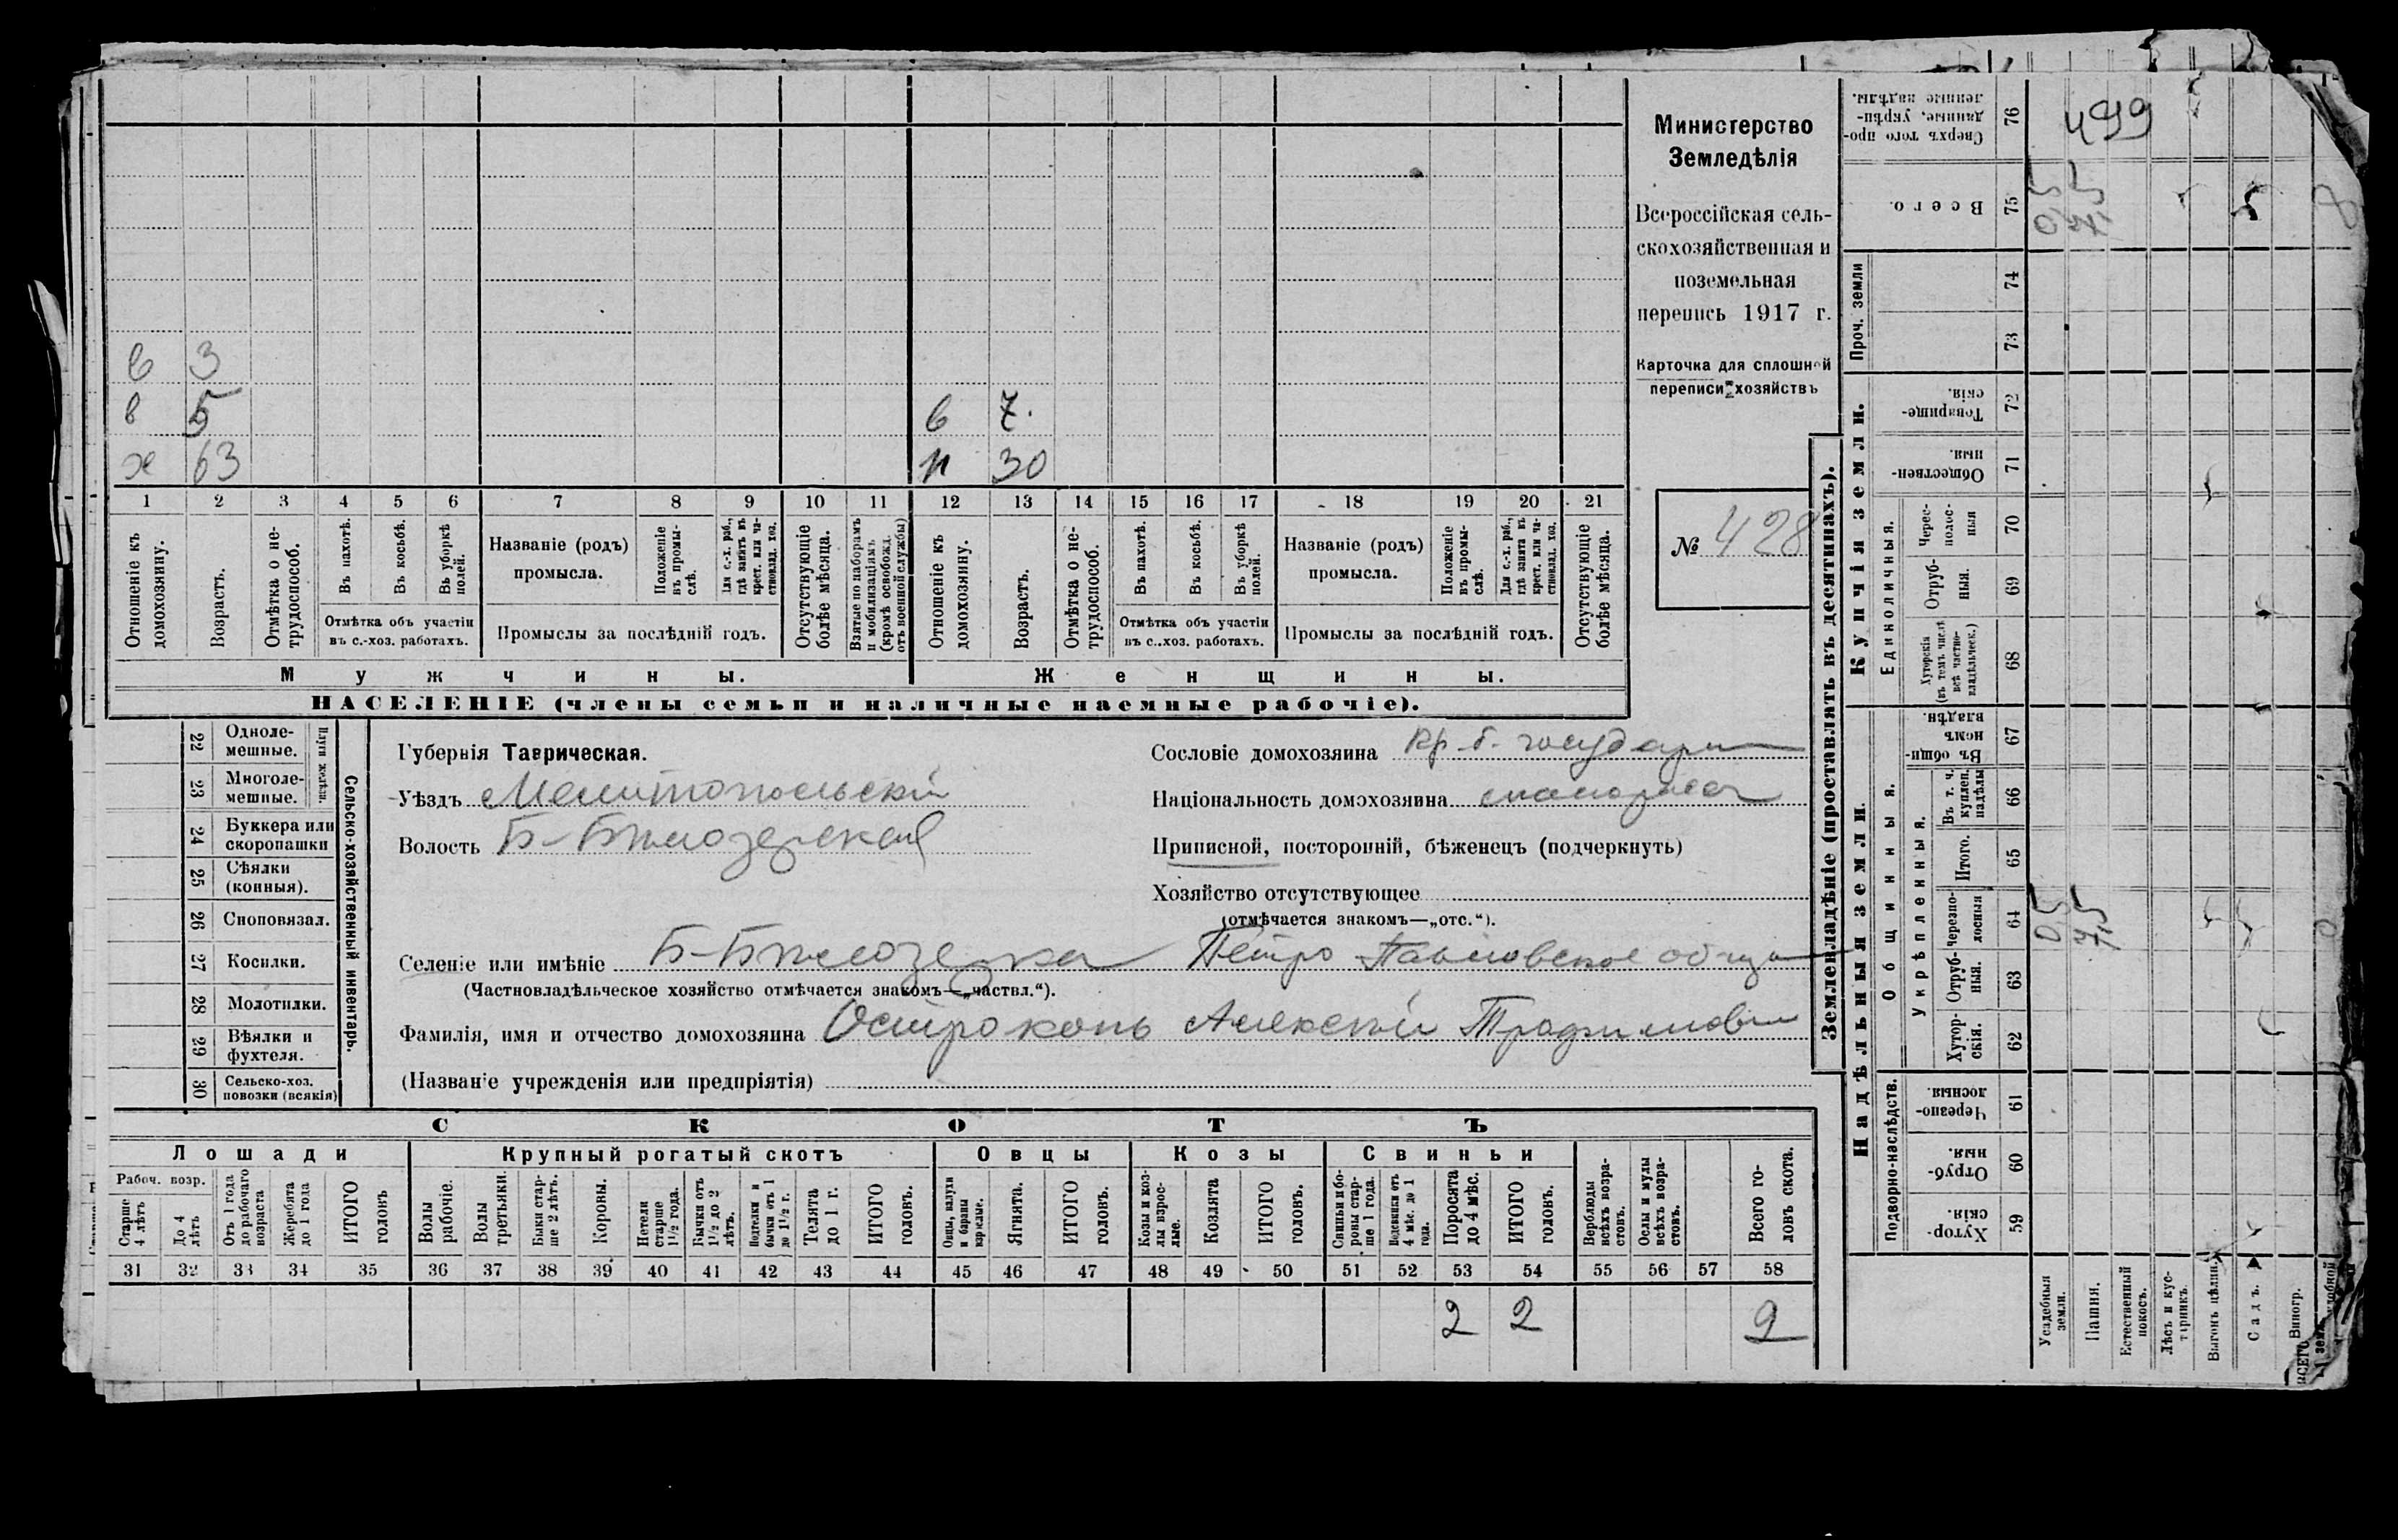 в 3
в 5 в 7.
х 63 н 30
1 2 3 4 5 6 7 8 9 10 11 12 13 14 15 16 17 18 19 20 21
Отношеніе къ домохозяину.
Возрастъ.
Отмѣтка о не-
трудоспособ.
Въ пахотѣ.
Въ косьбѣ.
Въ уборкѣ полей.
Отмѣтка объ участіи
въ с.-хоз. работахъ.
Названіе (родъ)
промысла.
Положеніе
въ промы-
слѣ.
Для с.-х. раб.,
гдѣ занятъ въ
крест. или ча-
стновлад. хоз.
Промыслы за послѣдній годъ.
Отсутствующіе
болѣе мѣсяца.
Взятые по наборамъ
и мобилизаціямъ
(кромѣ освобожд.
отъ военной службы)
Отношеніе къ
домохозяину.
Возрастъ.
Отмѣтка о не-
трудоспособ.
Въ пахотѣ.
Въ косьбѣ.
Въ уборкѣ
полей.
Отмѣтка объ участіи
въ с..хоз. работахъ.
Названіе (родъ)
промысла.
Положеніе
въ промы-
слѣ.
Для с.-х. раб.,
гдѣ занята въ
крест. или ча-
стновлад. хоз.
Промыслы за послѣдній годъ.
Отсутствующіе
болѣе мѣсяца.
Мужчины.
Женщины.
НАСЕЛЕНІЕ (члены семьи и наличные наемные рабочіе).
Министерство
Земледѣлія
Всероссійская сель-
скохозяйственная и
поземельная
перепись 1917 г.
Карточка для сплошной
переписи хозяйствъ
№ 428
22 Одноле-
мешные.
23 Многоле-
мешные.
Плуги желѣзн.
24 Буккера или
скоропашки
25 Сѣялки
(конныя).
26 Сноповязал.
27 Косилки.
28 Молотилки.
29 Вѣялки и
фухтеля.
30 Сельско-хоз.
повозки (всякія)
Сельско-хозяйственный инвентарь.
Губернія Таврическая.
Уѣздъ Мелитопольскій
Волость Б-Бѣлозерская
Сословіе домохозяина Кр. б. государ
Національность домохозяина малоросъ
Приписной, посторонній, бѣженецъ (подчеркнуть)
Хозяйство отсутствующее
(отмѣчается знакомъ—„отс.“).
Селеніе или имѣніе Б-Бѣлозерка Петро Павловское общ
(Частновладѣльческое хозяйство отмѣчается знакомъ—„частвл.“).
Фамилія, имя и отчество домохозяина Остроконь Алексѣй Трофимович
(Названіе учрежденія или предпріятія)
СКОТЪ
Лошади
Крупный рогатый скотъ
Овцы
Козы
Свиньи
Рабоч. возр.
Старше
4 лѣтъ
До 4
лѣтъ
Отъ 1 года
до рабочаго
возраста
Жеребята
до 1 года
ИТОГО
головъ
Волы
рабочіе.
Волы
третьяки.
Быки стар-
ше 2 лѣтъ.
Коровы.
Нетели
старше
1½ года.
Бычки отъ
1½ до 2
лѣтъ.
Подтелки и
бычки отъ 1
до 1½ г.
Телята
до 1 г.
ИТОГО
головъ.
Овцы, валухи
и бараны
взрослые.
Ягнята.
ИТОГО
головъ.
Козы и коз-
лы взрос-
лые.
Козлята
ИТОГО
головъ.
Свиньи и бо-
ровы стар-
ше 1 года.
Подсвинки отъ
4 мѣс. до 1
года.
Поросята
до 4 мѣс.
ИТОГО
головъ.
Верблюды
всѣхъ возра-
стовъ.
Ослы и мулы
всѣхъ возра-
стовъ.
Всего го-
ловъ скота.
31 32 33 34 35 36 37 38 39 40 41 42 43 44 45 46 47 48 49 50 51 52 53 54 55 56 57 58
2 2 2
Землевладѣніе (проставлять въ десятинахъ).
Купчія земли.
Надѣльныя земли.
Сверхъ того про-
данные, укрѣп-
ленные надѣлы.
76 499
Всего. 75
Проч. земли
74
73
Товарище-
скія. 72
Обществен-
ныя. 71
Единоличныя.
Черес-
полос-
ныя 70
Отруб-
ныя. 69
Хуторскія
(въ томъ числѣ
всѣ частно-
владѣльчес.) 68
Общинныя.
Въ общи-
номъ
владѣн. 67
Укрѣпленныя.
Въ т. ч.
куплен.
надѣлы 66
Итого. 65
Черезпо-
лосныя 64
Отруб-
ныя. 63
Хутор-
скія. 62
Подворно-наслѣдств.
Черезпо-
лосныя 61
Отруб-
ныя. 60
Хутор-
скія. 59
Усадебныя
земли.
Пашня.
Естественный
покосъ.
Лѣсъ и кус-
тарникъ.
Выгонъ цѣлин.
Садъ.
Виногр.